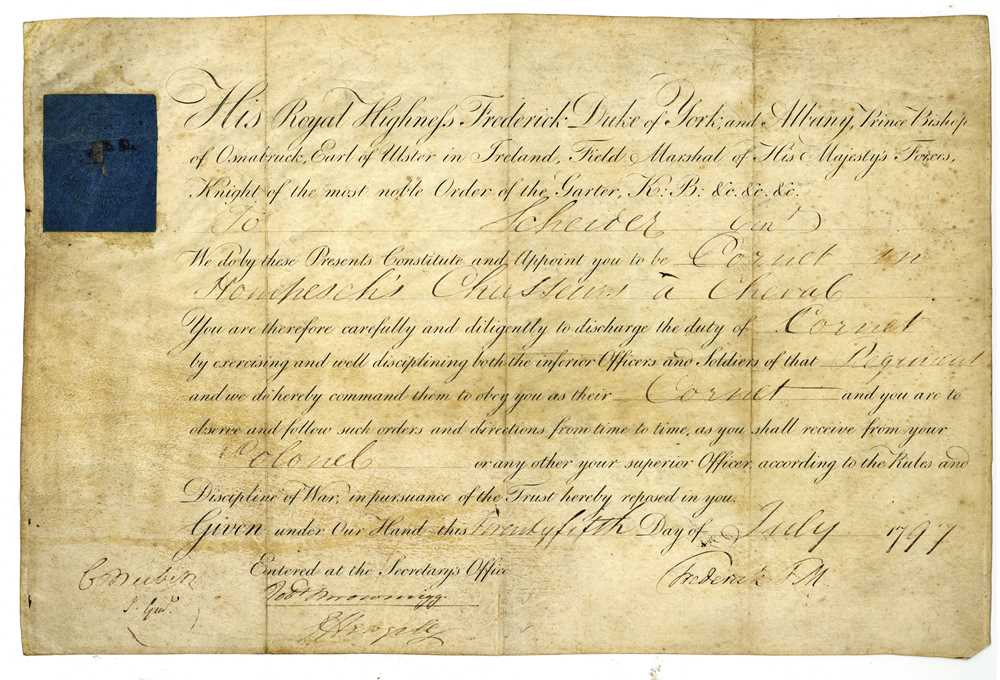 His Royal Highneſs Frederick Duke of York, and Albany, Prince Bishop
of Osnabruck, Earl of Ulster in Ireland, Field Marshal of His Majesty's Forces,
Knight of the most noble Order of the Garter, K: B: &c. &c. &c.
To Scheider Gent
We do by these Presents Constitute and Appoint you to be Cornet in
Hompesch's Chasseurs à Cheval
You are therefore carefully and diligently to discharge the duty of Cornet
by exercising and well disciplining both the inferior Officers and Soldiers of that Regiment
and we do hereby command them to obey you as their Cornet and you are to
observe and follow such orders and directions from time to time, as you shall receive from your
Colonel or any other your superior Officer, according to the Rules and
Discipline of War, in pursuance of the Trust hereby reposed in you.
Given under Our Hand this Twenty fifth Day of July 1797
Entered at the Secretary's Office
Frederick F.M.
Robt Brownrigg.